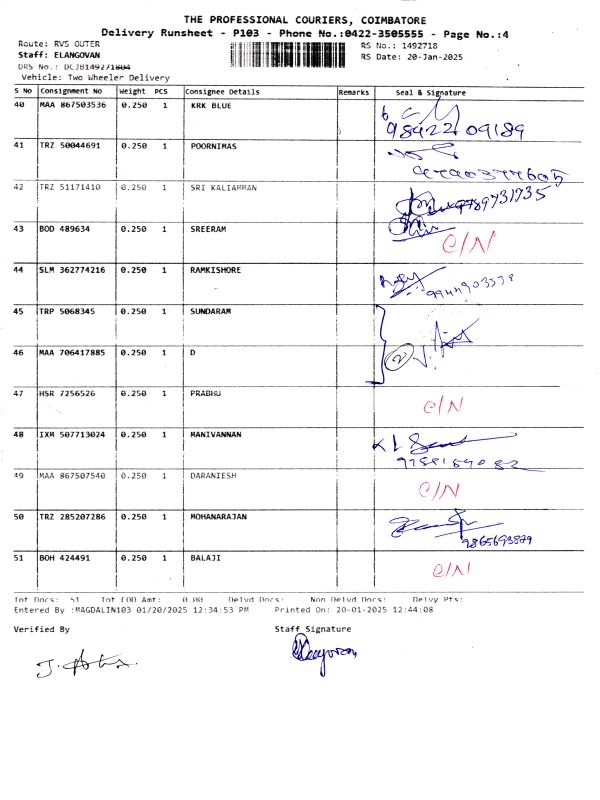 THE PROFESSIONAL COURIERS, COIMBATORE
Delivery Runsheet - P103 - Phone No.:0422-3505555 - Page No.:4
Route: RVS OUTER RS No.: 1492718
Staff: ELANGOVAN RS Date: 20-Jan-2025
DRS No.:
Vehicle: Two Wheeler Delivery
S No Consignment No Weight PCS Consignee Details Remarks Seal & Signature
40 MAA 867503536 0.250 1 KRK BLUE
98422 09189
41 TRZ 50044691 0.250 1 POORNIMAS
42 TRZ 51171410 0.250 1 SRI KALIAMMAN 9789731735
43 BOD 489634 0.250 1 SREERAM C/N
44 SLM 362774216 0.250 1 RAMKISHORE
45 TRP 5068345 0.250 1 SUNDARAM
46 MAA 706417885 0.250 1 D 2
47 HSR 7256526 0.250 1 PRABHU C/N
48 IXM 507713024 0.250 1 MANIVANNAN
49 MAA 867507540 0.250 1 DARANIESH C/N
50 TRZ 285207286 0.250 1 MOHANARAJAN
9865693879
51 BOH 424491 0.250 1 BALAJI C/N
Tot Docs: 51 Tot COD Amt: 0.00 Delvd Docs: Non Delvd Docs: Delvy Pts:
Entered By :MAGDALIN103 01/20/2025 12:34:53 PM Printed On: 20-01-2025 12:44:08
Verified By Staff Signature